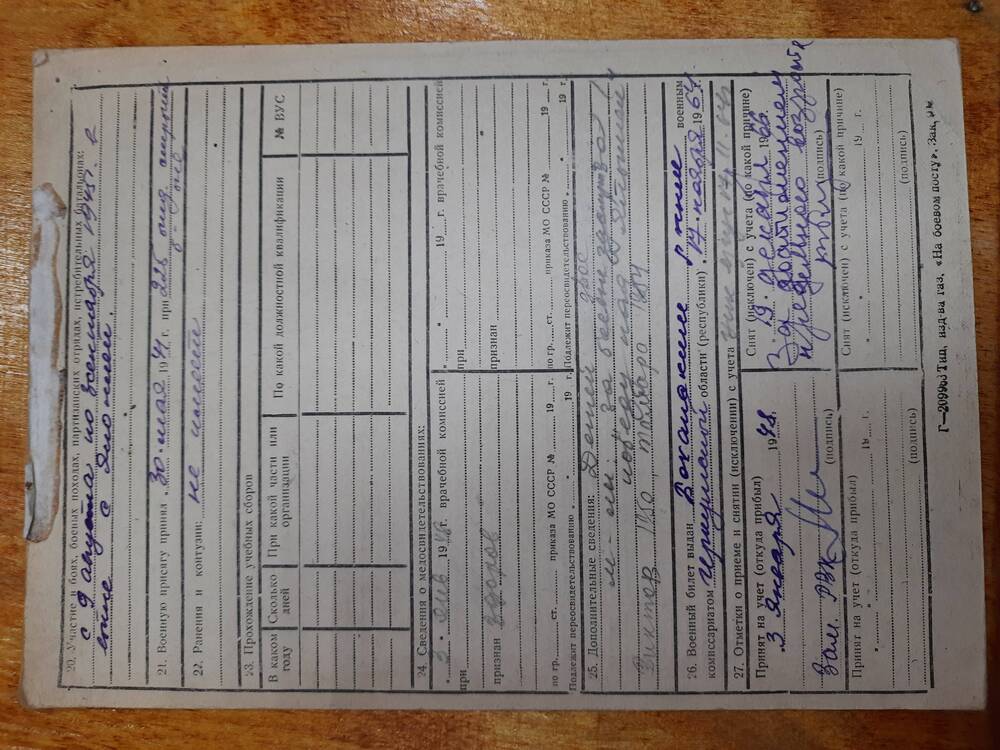 20. Участие в боях, боевых походах, партизанских отрядах, истребительных батальонах:
с 9 августа по 3 сентября 1945 г. в
войне с Японией.
21. Военную присягу принял „30" мая 1941 г. при 225
22. Ранения и контузии: не имеет
23. Прохождение учебных сборов
В каком году Сколько дней При какой части или организации По какой должностной квалификации № ВУС
24. Сведения о медосвидетельствованиях:
„3" янв 1948 г. врачебной комиссией
при
признан здоров
по гр. ст. приказа МО СССР № 19 г.
Подлежит переосвидетельствованию „ " 19 г.
„ " 19 г. врачебной комиссией
при
признан
по гр. ст. приказа МО СССР № 19 г.
Подлежит переосвидетельствованию „ " 19 г.
25. Дополнительные сведения: Детей двое
м-ли: "за боевые заслуги
победу над Японией"
Виктор 1950, Тамара 1954
26. Военный билет выдан Боханским рвк военным
комиссариатом Иркутской области (республики) „17" ноября 1964 г.
27. Отметки о приеме и снятии (исключении) с учета
Принят на учет (откуда прибыл)
3 января 1948
Зам. РВК (подпись)
Снят (исключен) с учета (по какой причине)
„19" декабря 1966
За достижением
предельного возраста
(подпись)
Принят на учет (откуда прибыл)
„ " 19 г.
(подпись)
Снят (исключен) с учета (по какой причине)
„ " 19 г.
(подпись)
Г—209963 Тип. изд-ва газ. «На боевом посту». Зак.